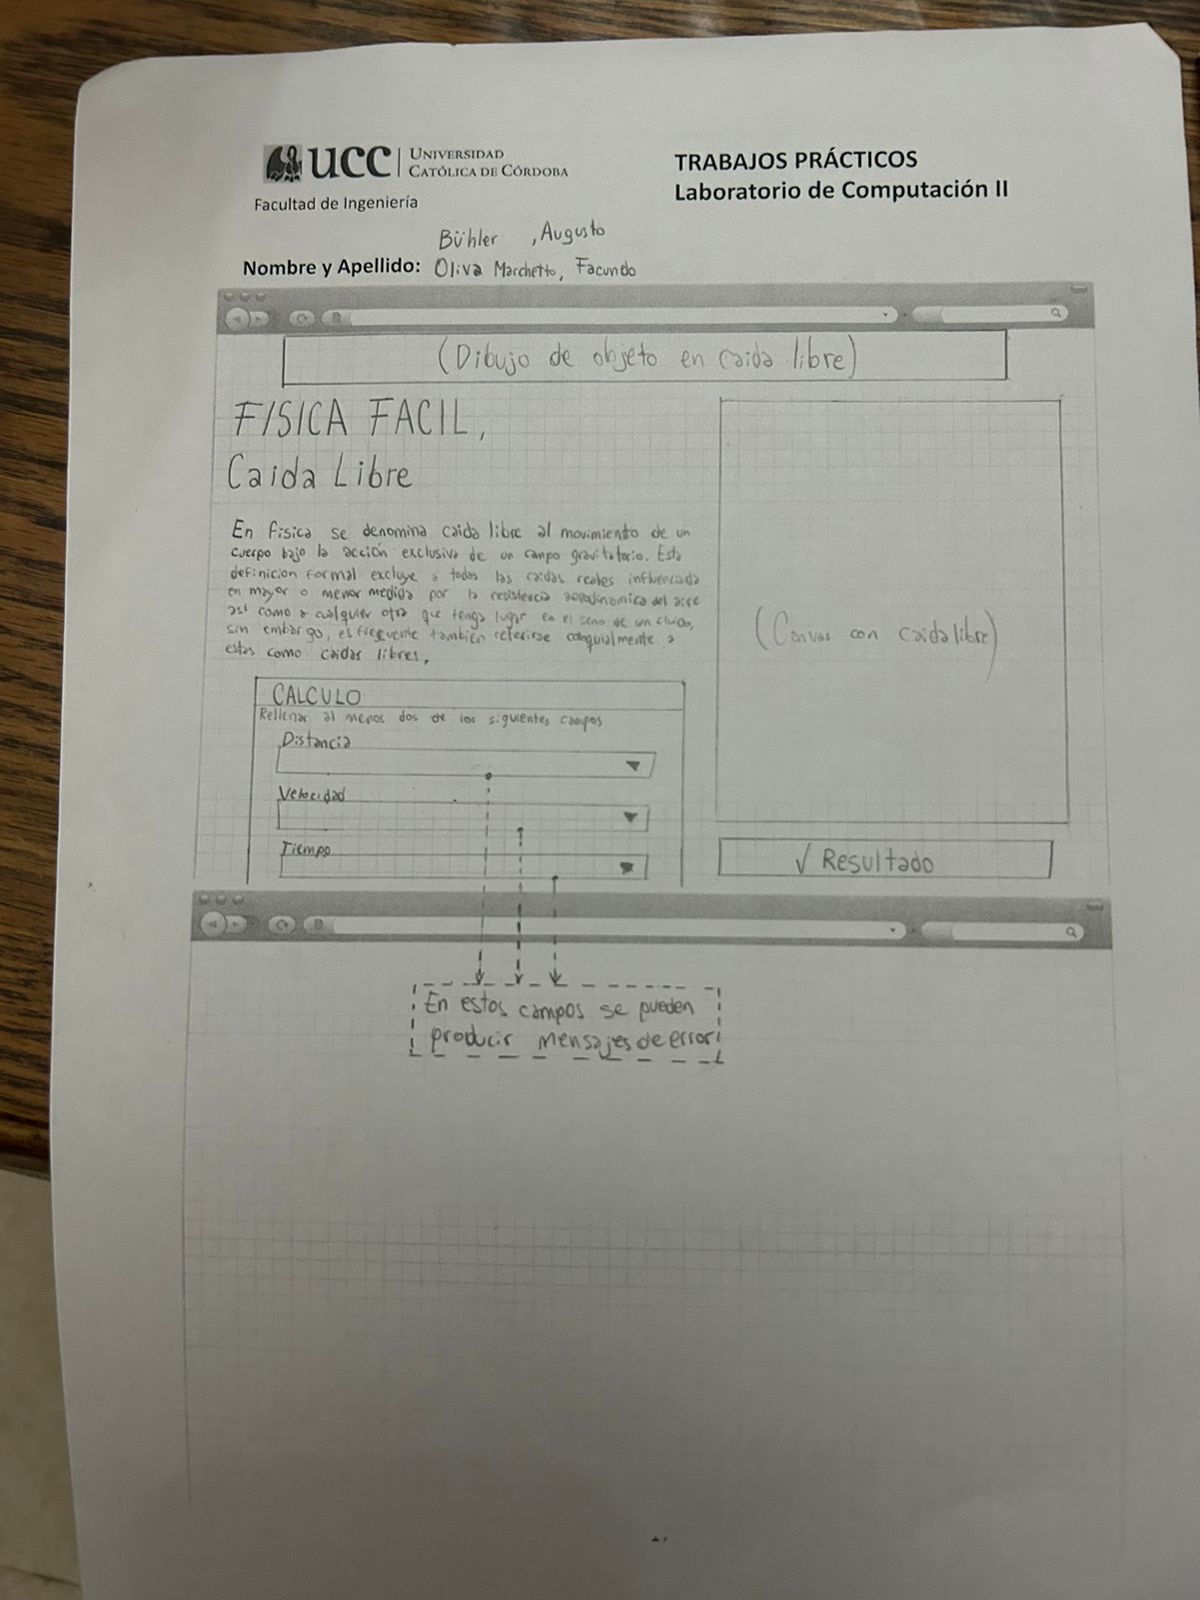 UCC UNIVERSIDAD
CATÓLICA DE CÓRDOBA
Facultad de Ingeniería
TRABAJOS PRÁCTICOS
Laboratorio de Computación II
Bühler , Augusto
Nombre y Apellido: Oliva Marchetto, Facundo
(Dibujo de objeto en caida libre)
FISICA FACIL,
Caida Libre
En fisica se denomina caida libre al movimiento de un
cuerpo bajo la acción exclusiva de un campo gravitatorio. Esta
definicion formal excluye a todas las caidas reales influenciada
en mayor o menor medida por la resistencia aerodinamica del aire
asi como a cualquier otra que tenga lugar en el seno de un fluido,
sin embargo, es frecuente tambien referirse coloquialmente a
estas como caidas libres.
CALCULO
Rellenar al menos dos de los siguientes campos
Distancia
Velocidad
Tiempo
(Canvas con caida libre)
√ Resultado
En estos campos se pueden
producir mensajes de error